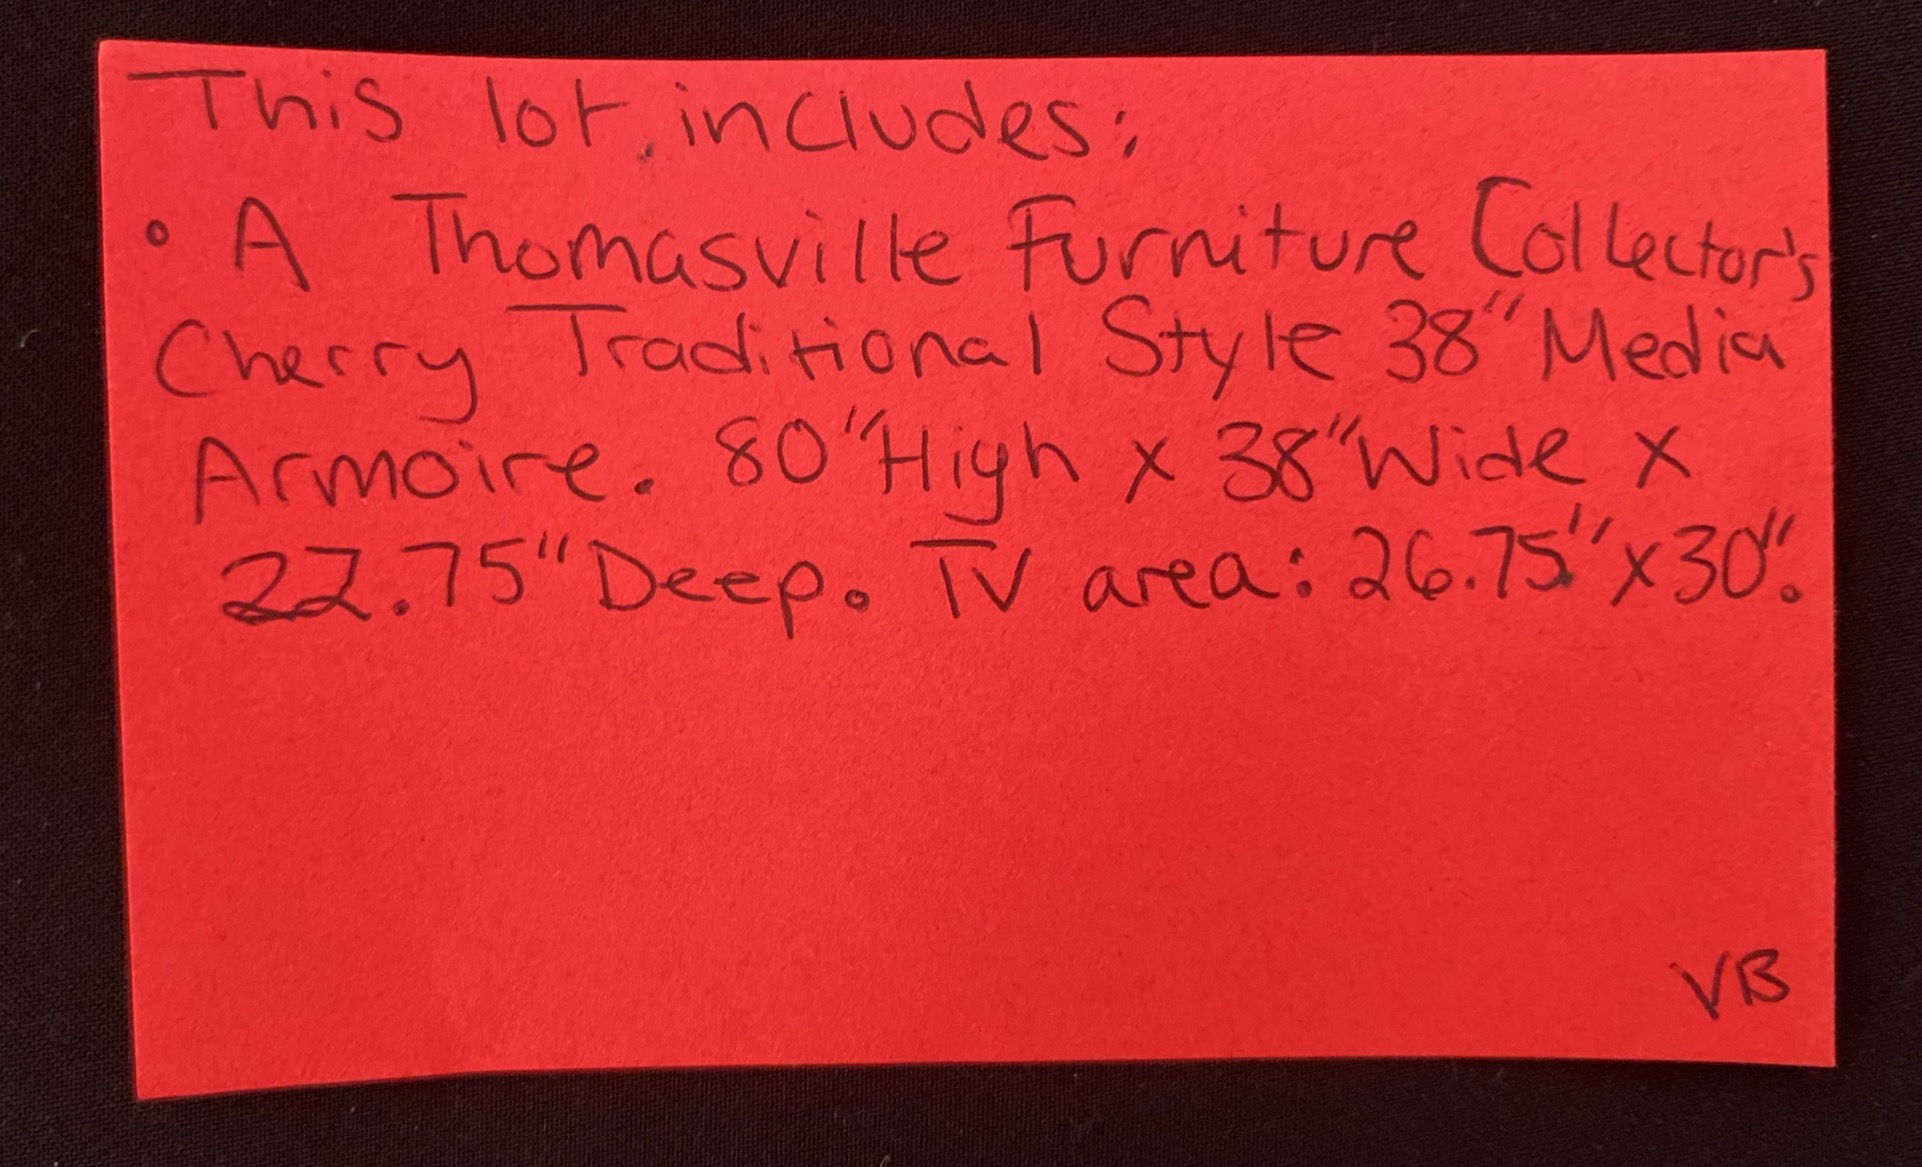 This lot includes:
• A Thomasville Furniture Collector's
Cherry Traditional Style 38" Media
Armoire. 80" High x 38" Wide x
22.75" Deep. TV area: 26.75" x 30".
VB